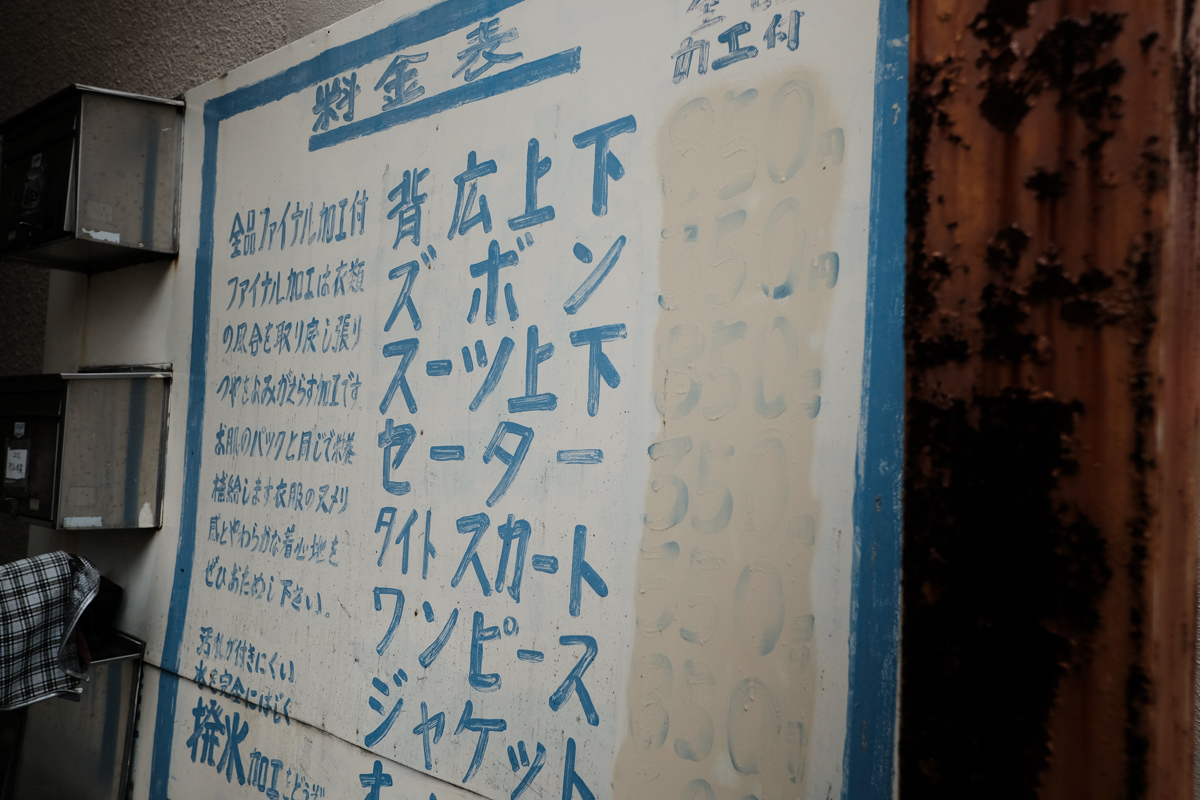 料金表
加工付
背広上下
ズボン
スーツ上下
セーター
タイトスカート
ワンピース
ジャケット
850円
350円
850円
350円
350円
全品ファイナル加工付
ファイナル加工は衣類
の風合を取り戻し張り
つやをよみがえらす加工です
お肌のパックと同じで栄養
補給します衣服のヌメリ
感とやわらかな着心地を
ぜひおためし下さい。
汚れが付きにくい
水を完全にはじく
撥水加工もどうぞ